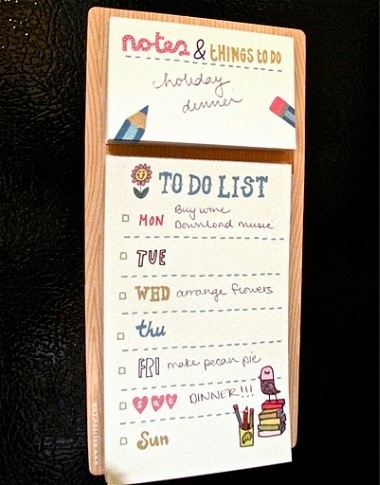 notes & THINGS TO DO
holiday
dinner
TO DO LIST
MON Buy wine
Download music
TUE
WED arrange flowers
thu
FRI make pecan pie
SAT DINNER!!!
Sun